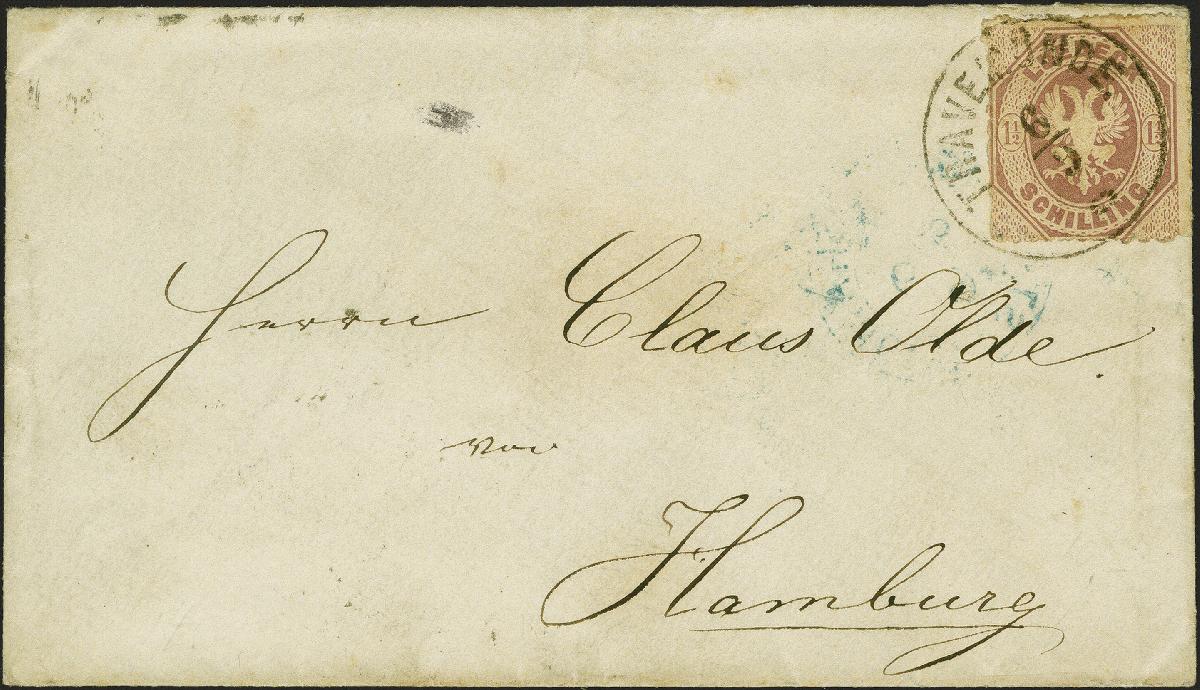 TRAVEMÜNDE.
LUEBECK
1½ 1½
SCHILLING
Herrn Claus Olde.
Hamburg